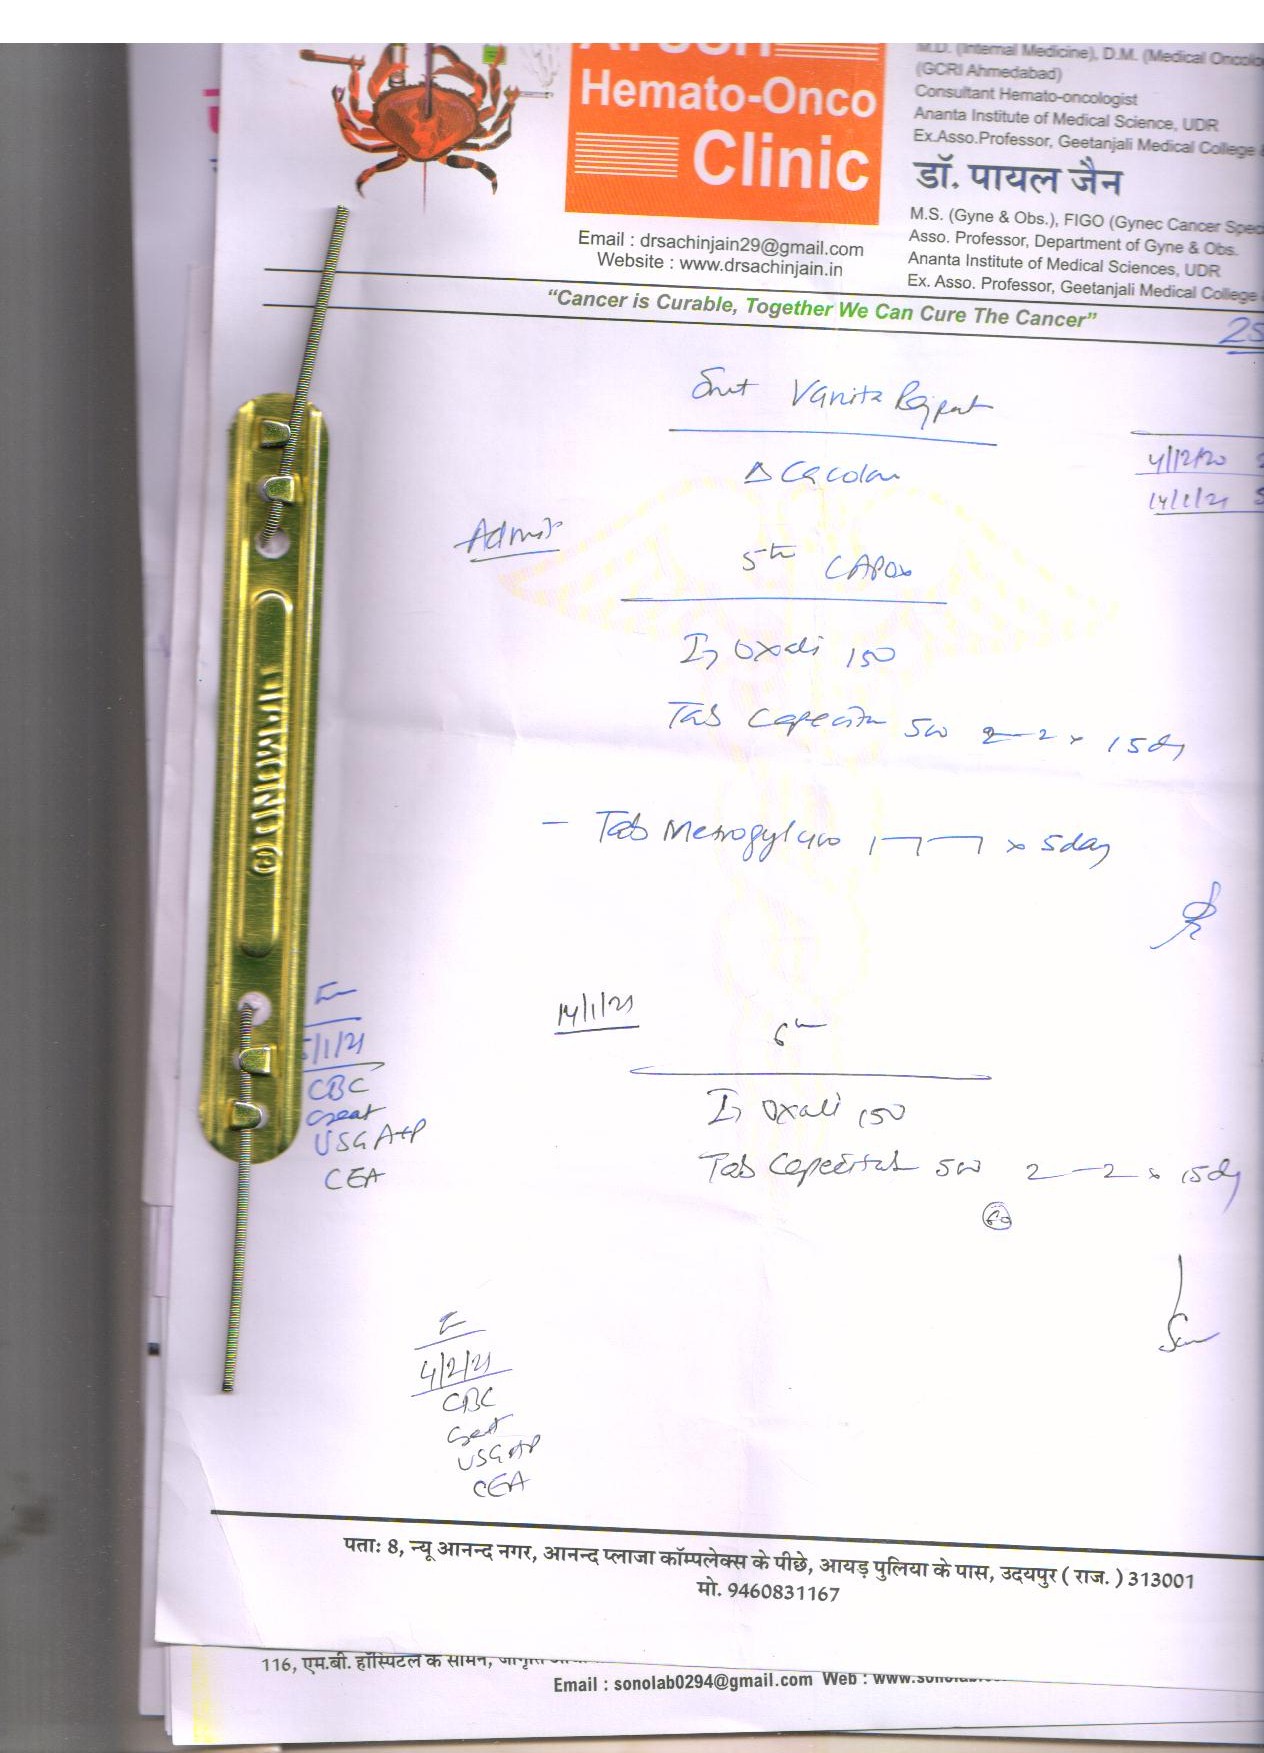 Hemato-Onco
Clinic
Email : drsachinjain29@gmail.com
Website : www.drsachinjain.in
M.D. (Internal Medicine), D.M. (Medical Oncolo
(GCRI Ahmedabad)
Consultant Hemato-oncologist
Ananta Institute of Medical Science, UDR
Ex.Asso.Professor, Geetanjali Medical College &
डॉ. पायल जैन
M.S. (Gyne & Obs.), FIGO (Gynec Cancer Spec
Asso. Professor, Department of Gyne & Obs.
Ananta Institute of Medical Sciences, UDR
Ex. Asso. Professor, Geetanjali Medical College
"Cancer is Curable, Together We Can Cure The Cancer"
25
Smt Vanita Rajput
4/12/20
14/1/21
Δ Ca colon
Admit
5th CAPOX
Inj Oxali 150
Tab Capecita 500 2—2 x 15dy
- Tab Metrogyl 400 1 x 5day
DIAMOND ®
/1/21
CBC
Creat
USG A+P
CEA
14/1/21
6th
Inj Oxali 150
Tab Capecitab 500 2—2 x 15dy
60
4/2/21
CBC
Creat
USG AP
CEA
पताः 8, न्यू आनन्द नगर, आनन्द प्लाजा कॉम्पलेक्स के पीछे, आयड़ पुलिया के पास, उदयपुर ( राज. ) 313001
मो. 9460831167
116, एम.बी. हॉस्पिटल के सामने,
Email : sonolab0294@gmail.com Web :